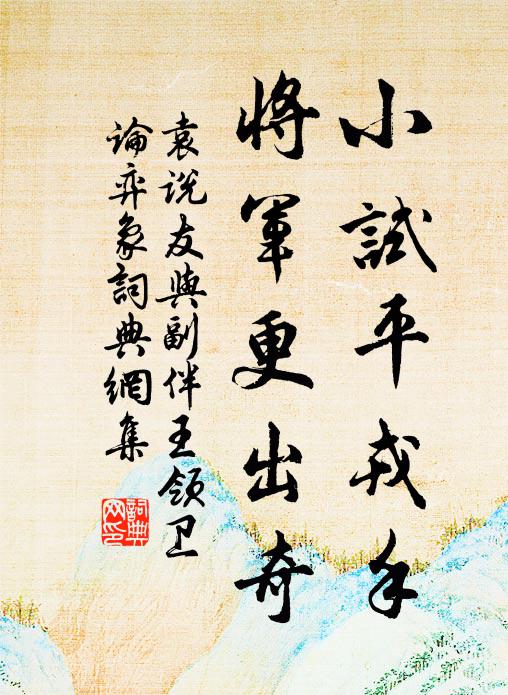 小試平戎手
將軍更出奇
袁說友與副伴王領卫
論弈象詞典網集
詞典
网印